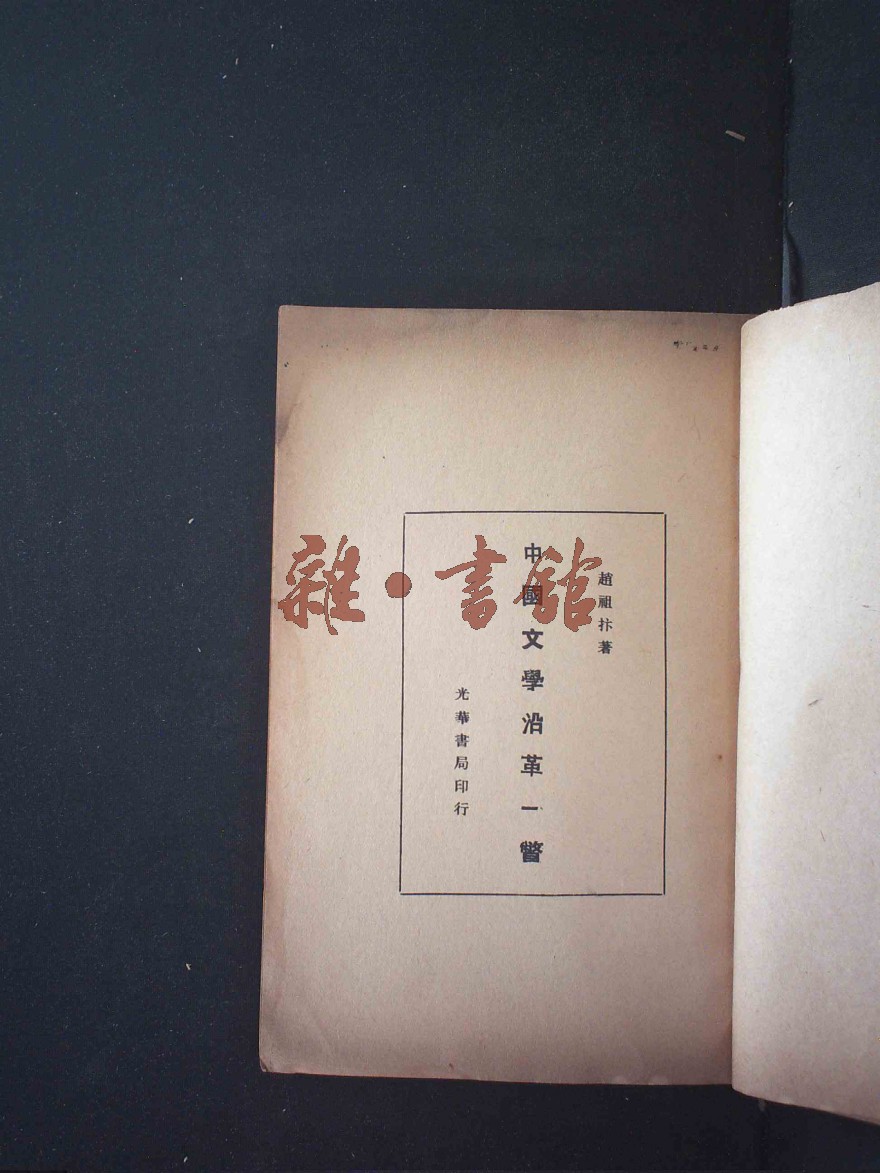 趙祖抃著
中國文學沿革一瞥
光華書局印行
雜·書館